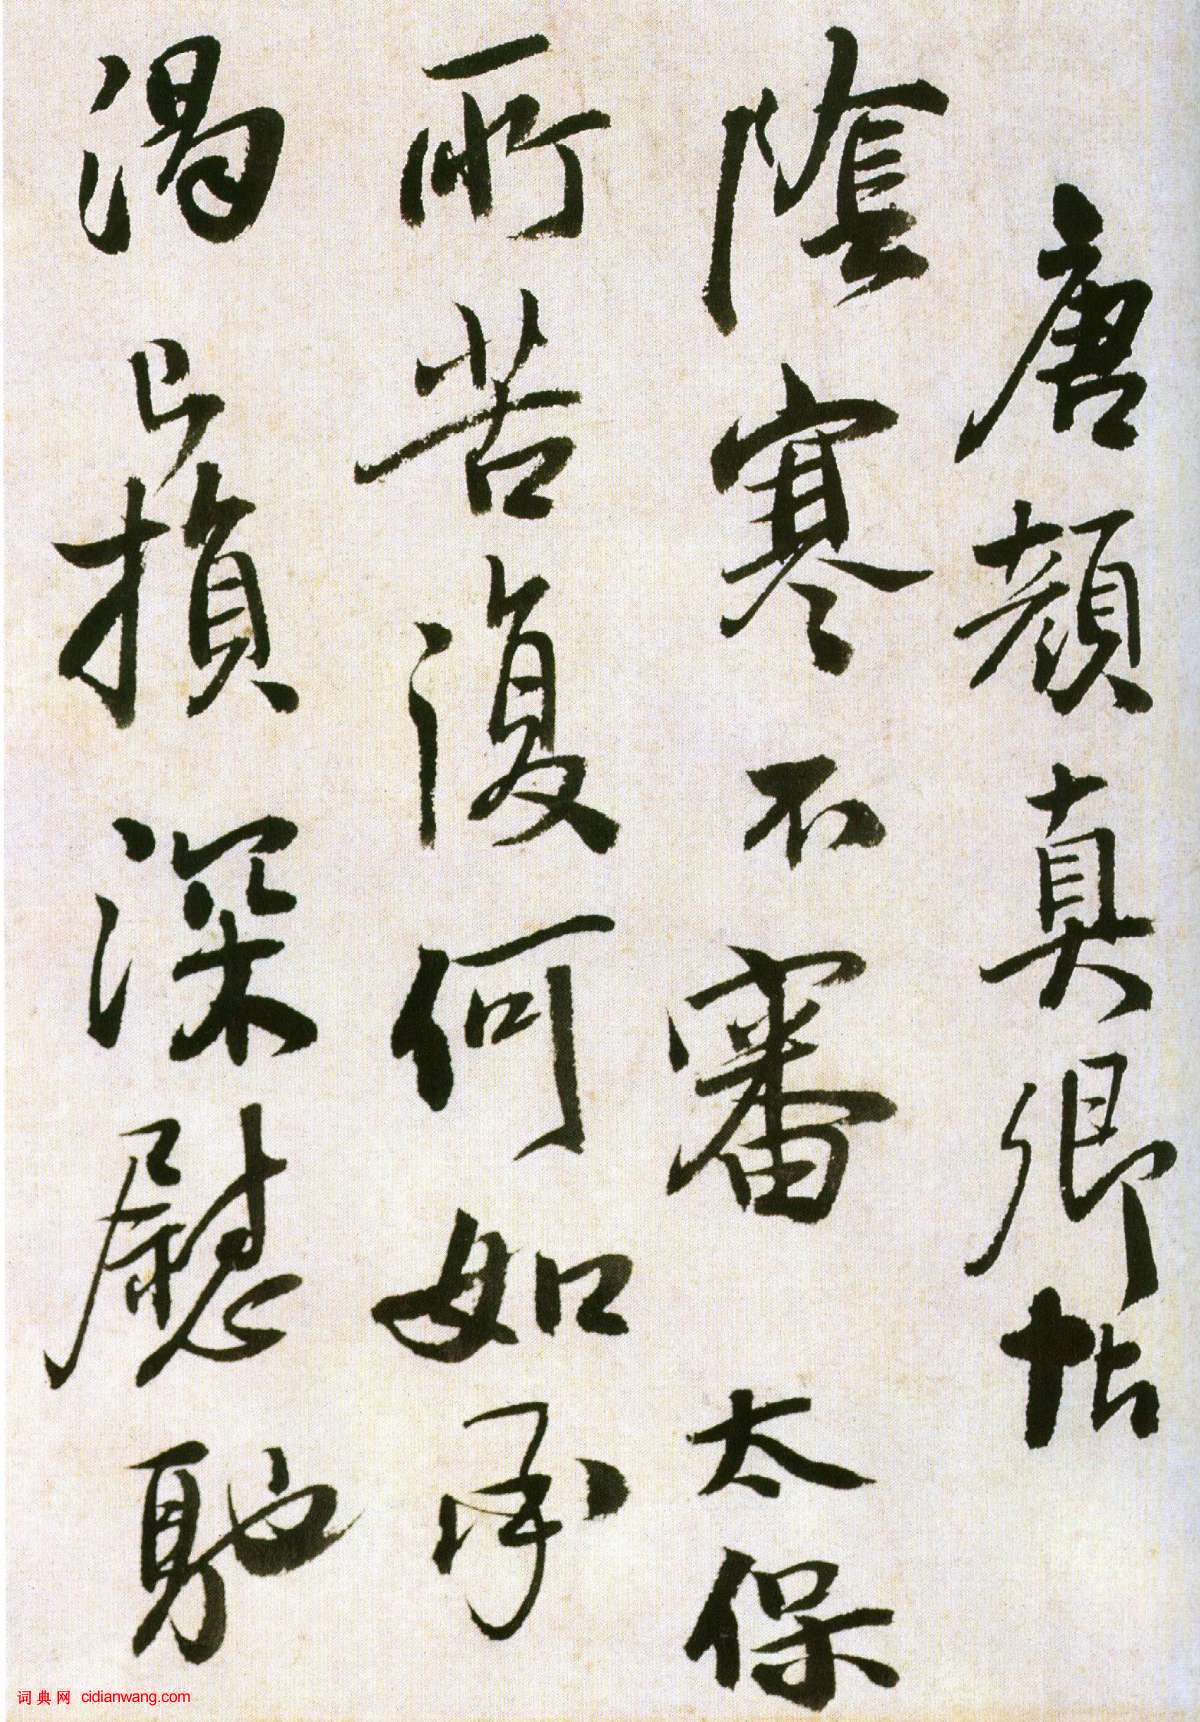 唐顏真卿帖
陰寒不審太保
所苦復何如承
渴已損深慰馳
词典网 cidianwang.com